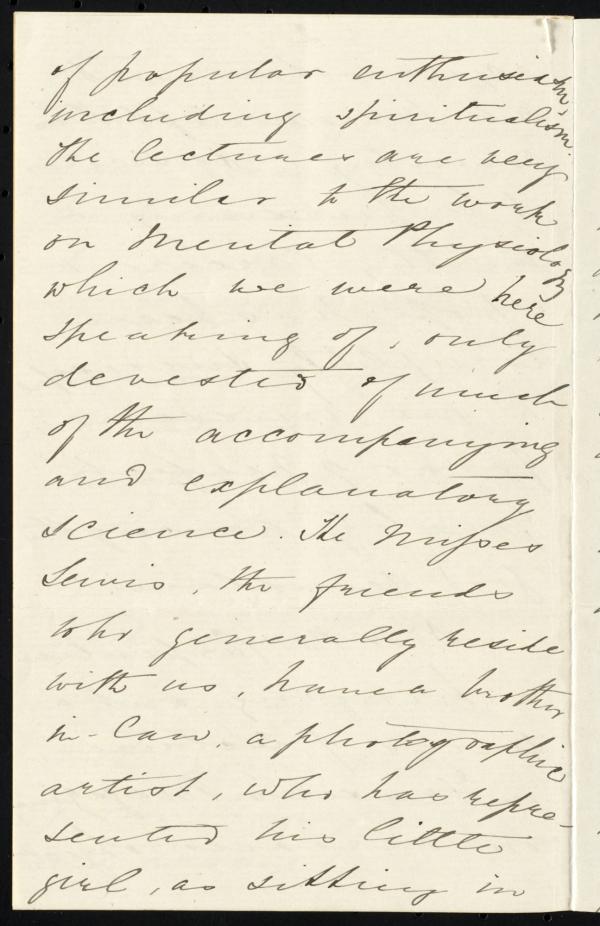 of popular enthusiasm,
including spiritualism.
The lectures are very
similar to the work
on Mental Physiology
which we were here
speaking of, only
devested of much
of the accompanying
and explanatory
science. The Misses
Lewis, the friends
who generally reside
with us, have a brother
in-law, a photographic
artist, who has repre-
sented his little
girl, as sitting in